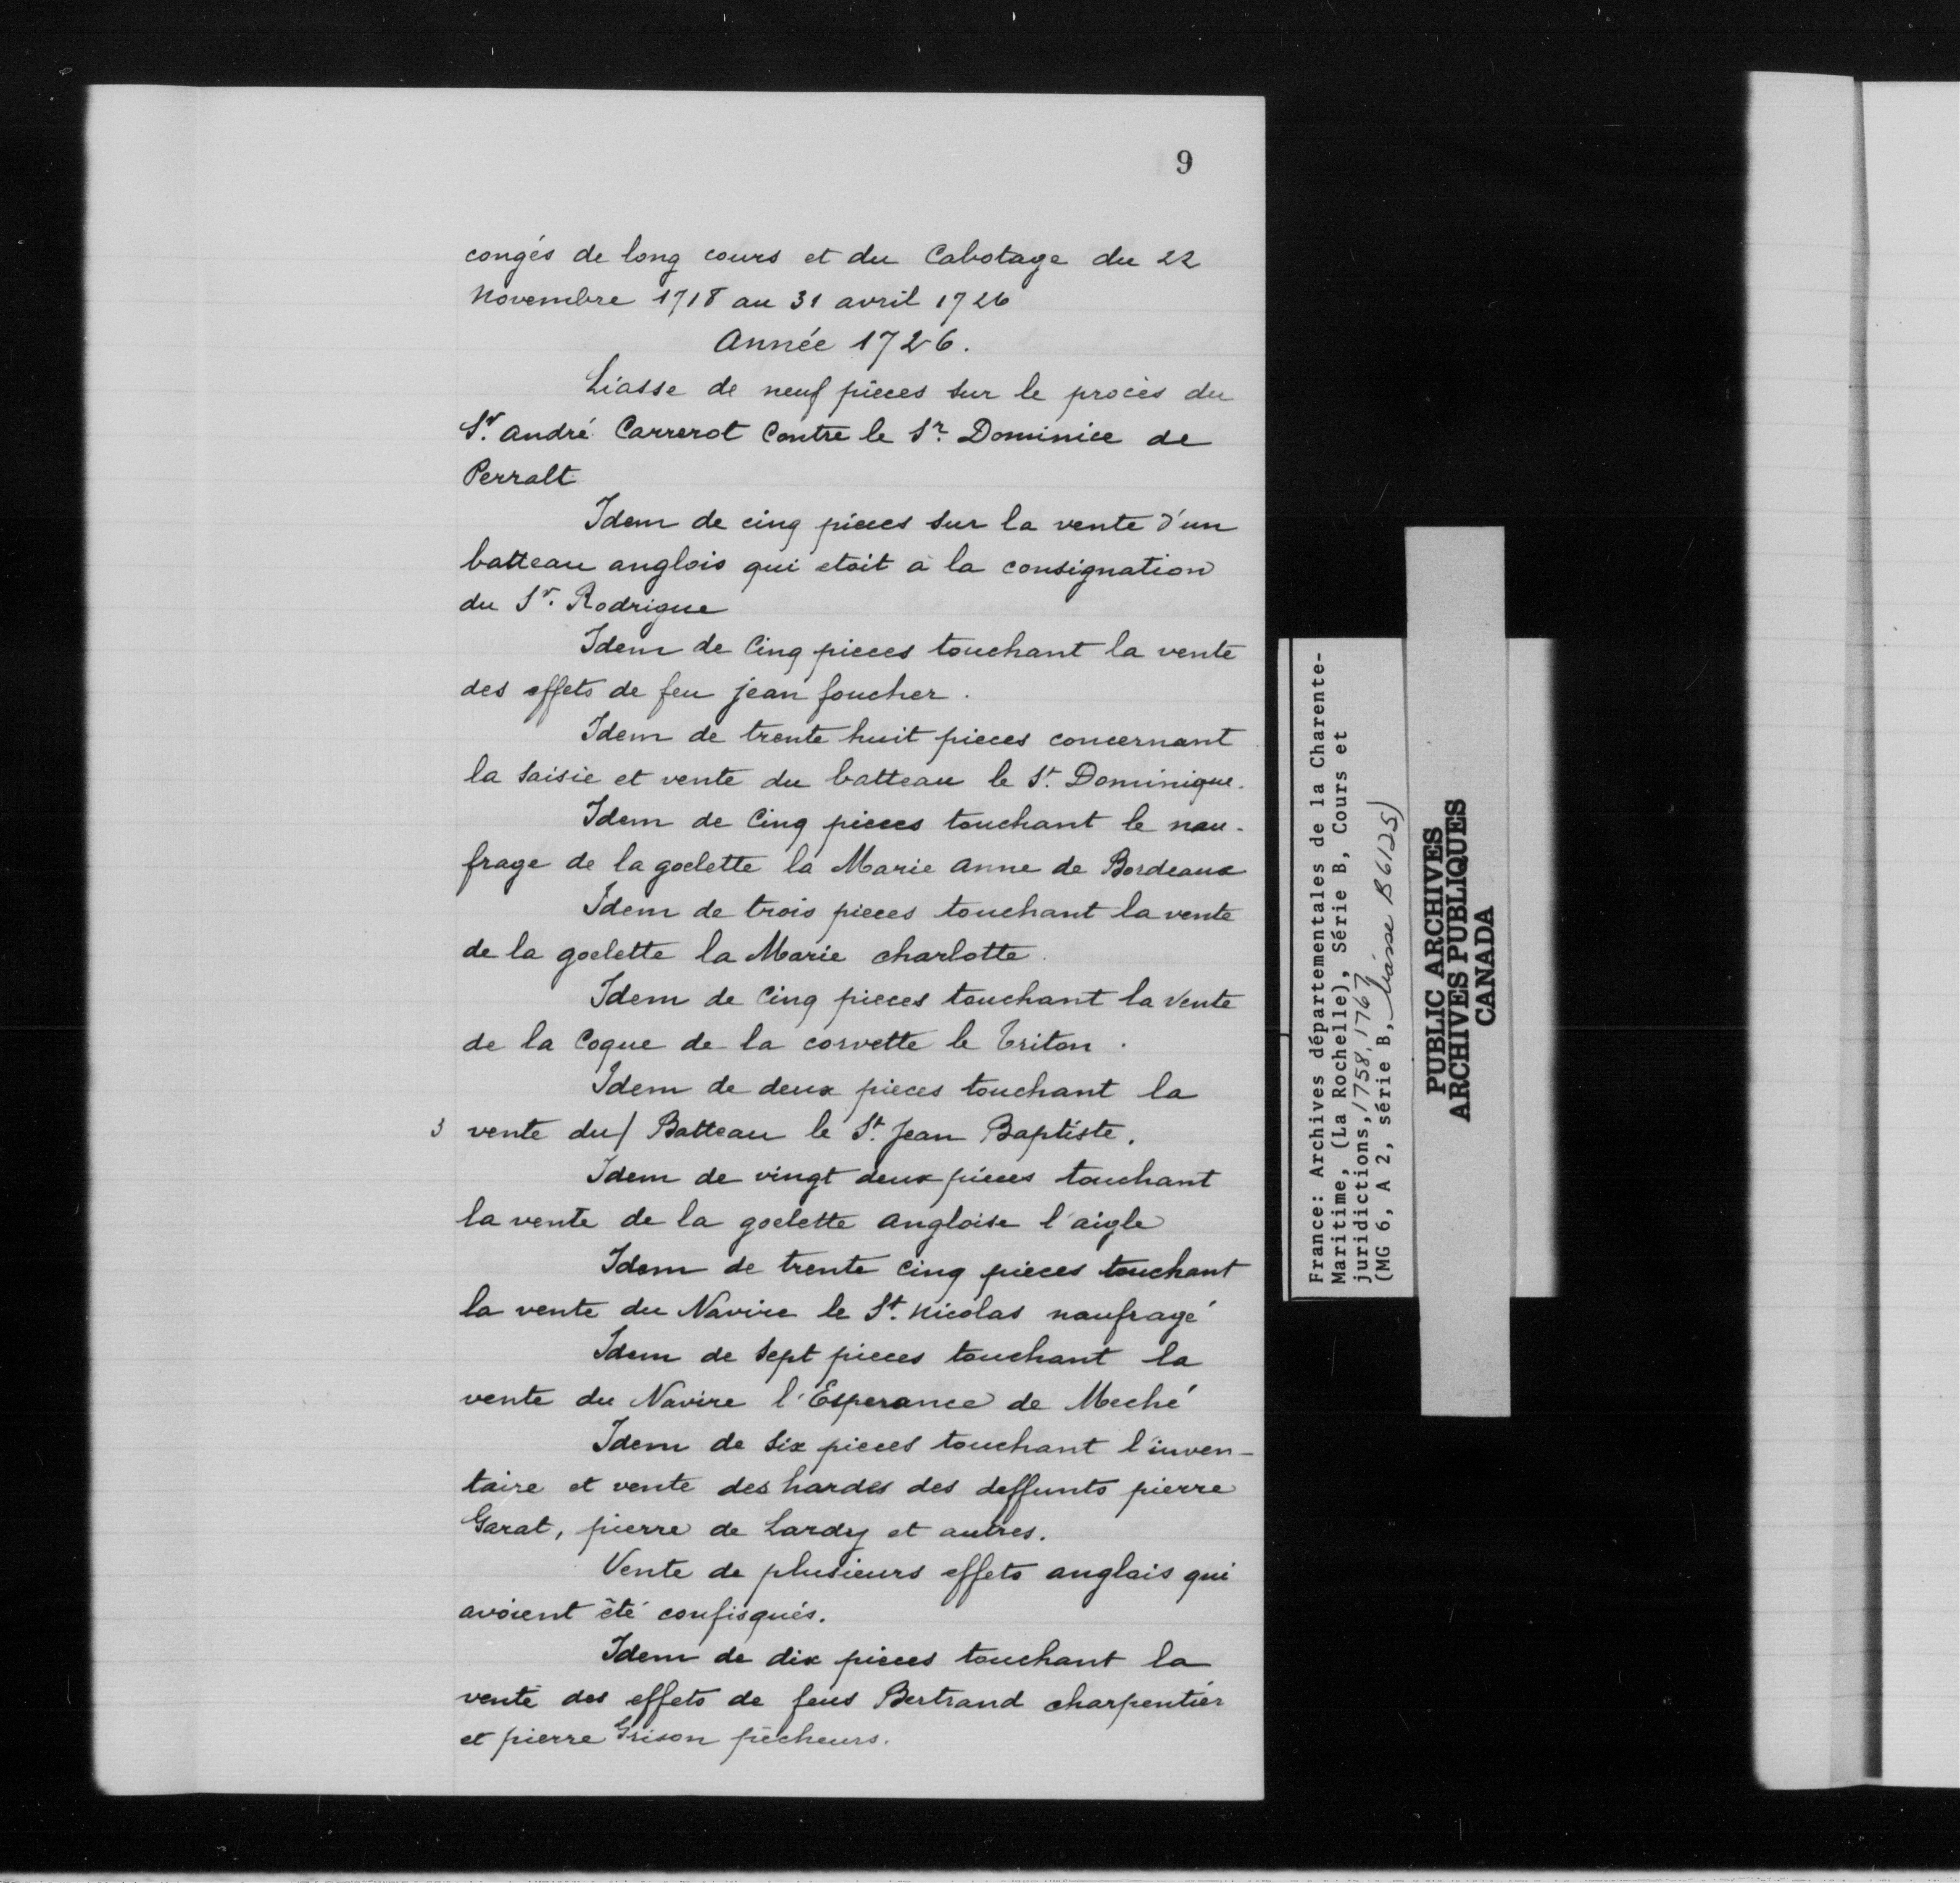 9
congés de long cours et du Cabotage du 22
Novembre 1718 au 31 avril 1726
Année 1726.
Liasse de neuf pièces sur le procès du
Sr. andré Carrerot Contre le Sr. Dominice de
Perralt
Idem de cinq pièces sur la vente d'un
batteau anglois qui etoit à la consignation
du Sr. Rodrigue
Idem de Cinq pieces touchant la vente
des effets de feu jean foucher.
Idem de trente huit pieces concernant
la saisie et vente du batteau le St. Dominique.
Idem de Cinq pieces touchant le nau-
frage de la goelette la Marie anne de Bordeaux
Idem de trois pieces touchant la vente
de la goelette la Marie charlotte.
Idem de Cinq pieces touchant la vente
de la Coque de la corvette le Triton.
Idem de deux pieces touchant la
3 vente du/ Batteau le St. Jean Baptiste.
Idem de vingt deux pièces touchant
la vente de la goelette angloise l'aigle
Idem de trente Cinq pièces touchant
la vente du Navire le St. Nicolas naufragé
Idem de sept pieces touchant la
vente du Navire l'Esperance de Meché
Idem de six pieces touchant l'inven-
taire et vente des hardes des deffunts pierre
Garat, pierre de Lardy et autres.
Vente de plusieurs effets anglais qui
avoient été confisqués.
Idem de dix pieces touchant la
vente des effets de feus Bertrand charpentier
et pierre Grison pêcheurs.
France: Archives départementales de la Charente-
Maritime, (La Rochelle), Série B, Cours et
juridictions, 1758, 1767
(MG 6, A 2, série B, liasse B6125)
PUBLIC ARCHIVES
ARCHIVES PUBLIQUES
CANADA